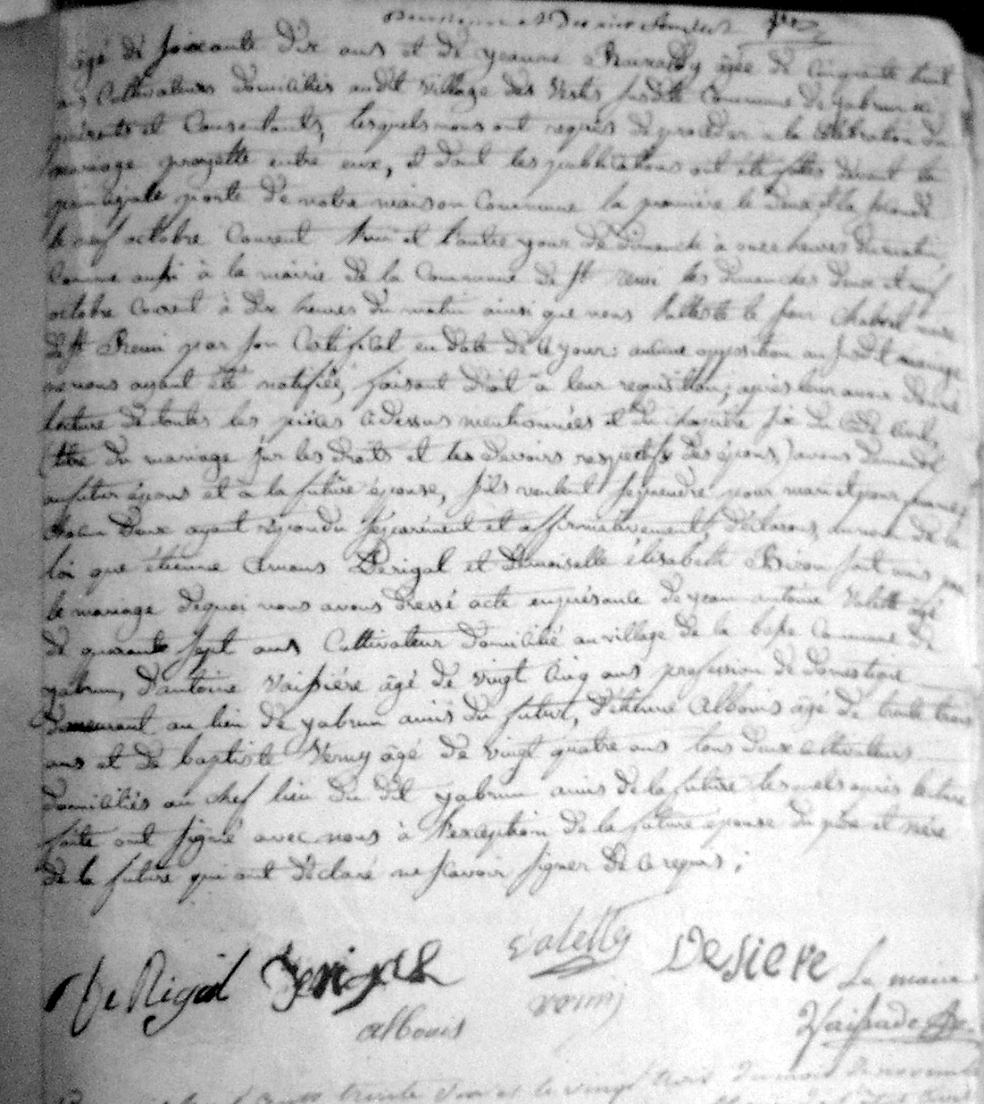 âgé de soixante dix ans et de jeanne âgée de cinquante huit
ans Cultivateurs domiciliés audit village des susdite Commune de jabrun
et Consentants, lesquels nous ont requis de procéder a la célébration du
mariage projetté entre eux, et dont les publications ont été faittes devant la
principale porte de notre maison Commune la première le deux et la seconde
le neuf octobre Courent l'un et l'autre jour de dimanche à onze heures du matin,
Comme aussi à la mairie de la Commune de st Remi les dimanches deux et neuf
octobre Courent à dix heures du matin ainsi que nous l'atteste le sieur Chabert maire
de st Remi par son Certificat en date de ce jour: aucune opposition au susdit mariage
ne nous ayant été notifiée, faisant droit à leur requisition; après leur avoir donné
lecture de toutes les pièces ci dessus mentionnées et du chapitre six du code civil,
(titre du mariage sur les droits et les devoirs respectifs des époux) avons demandé
au futur époux et à la future épouse, s'ils veulent se prendre pour mari et pour femme
chacun deux ayant répondu séparément et affirmativement, déclarons, au nom de la
loi que étienne Arnaus Derigal et demoiselle élisabeth sont unis par
le mariage de quoi nous avons dressé acte en présence de jean antoine Valette âgé
de quarante sept ans Cultivateur domicilié au village de la Commune de
jabrun, d'antoine Vaissière âgé de vingt cinq ans profession de domestique
demeurant au lieu de jabrun amis du futur, d'étienne Albouis âgé de trente trois
ans et de baptiste Verny âgé de vingt quatre ans tous deux cultivateurs
domiciliés au chef lieu du dit jabrun amis de la future lesquels après lecture
faite ont signé avec nous à l'exception de la future épouse du père et mère
de la future qui ont déclaré ne savoir signer de ce requis;
De Rigal Derigal Valette Vesiere Le maire
albouis Vaissade